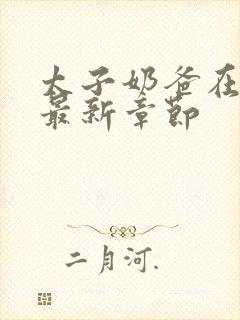 太子奶爸在
最新章节
二月河.